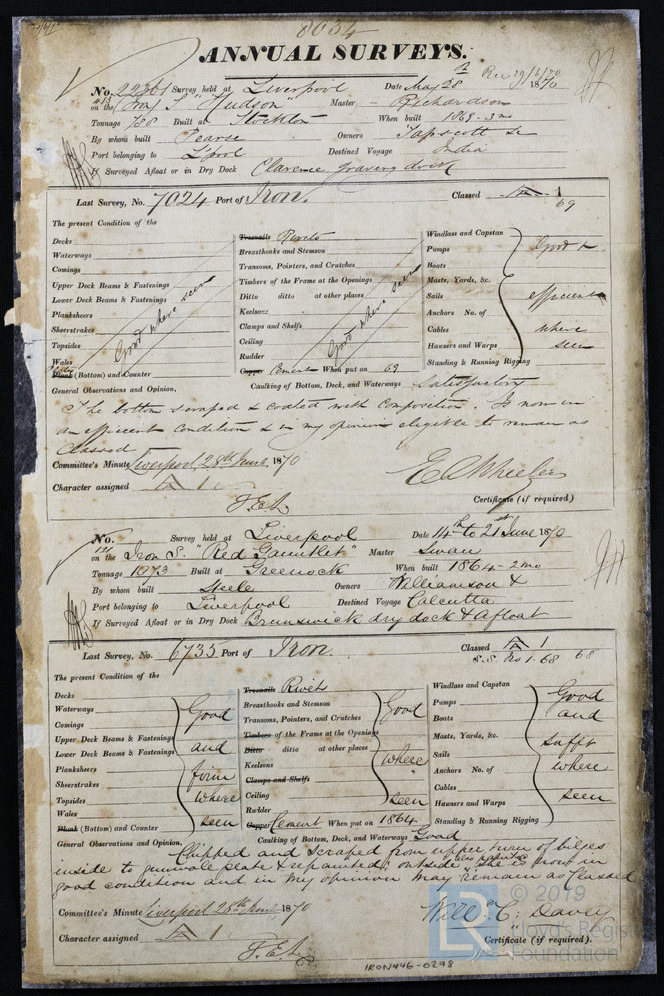 8034
ANNUAL SURVEYS.
Rec 29/6/70
No. 22361 Survey held at Liverpool Date May 28 1870
on the Iron S. "Hudson" Master - Richardson
Tonnage 788 Built at Stockton When built 1869-3mo
By whom built Pearse Owners Tapscott &c
Port belonging to Lpool Destined Voyage India
If Surveyed Afloat or in Dry Dock Clarence graving dock
Last Survey, No. 7024 Port of Iron. Classed A 1
69
The present Condition of the
Decks
Waterways
Comings
Upper Deck Beams & Fastenings
Lower Deck Beams & Fastenings
Planksheers
Sheerstrakes
Topsides
Wales
Plank (Bottom) and Counter
Good where seen
Treenails Rivets
Breasthooks and Stemson
Transoms, Pointers, and Crutches
Timbers of the Frame at the Openings
Ditto ditto at other places
Keelsons
Clamps and Shelfs
Ceiling
Rudder
Copper Cement When put on 69
Good where seen
Windlass and Capstan
Pumps
Boats
Masts, Yards, &c.
Sails
Anchors No. of
Cables
Hawsers and Warps
Standing & Running Rigging
Good &
efficient
where
seen
Caulking of Bottom, Deck, and Waterways Satisfactory
General Observations and Opinion,
The bottom scraped & coated with composition. Is now in
an efficient condition & in my opinion eligible to remain as
Classed
Committee's Minute Liverpool, 28th June 1870
Character assigned A 1
E C Wheeler
Certificate (if required)
No. Survey held at Liverpool Date 14th to 21st June 1870
on the Iron S. "Red Gauntlet" Master Swan
Tonnage 1073 Built at Greenock When built 1864-2mo
By whom built Steele Owners Williamson &
Port belonging to Liverpool Destined Voyage Calcutta
If Surveyed Afloat or in Dry Dock Brunswick dry dock & Afloat
Last Survey, No. 6735 Port of Iron. Classed A 1
S.S. No 1-68 68
The present Condition of the
Decks
Waterways
Comings
Upper Deck Beams & Fastenings
Lower Deck Beams & Fastenings
Planksheers
Sheerstrakes
Topsides
Wales
Plank (Bottom) and Counter
Good
and
firm
where
seen
Treenails Rivets
Breasthooks and Stemson
Transoms, Pointers, and Crutches
Timbers of the Frame at the Openings
Ditto ditto at other places
Keelsons
Clamps and Shelfs
Ceiling
Rudder
Copper Cement When put on 1864
Good
where
seen
Windlass and Capstan
Pumps
Boats
Masts, Yards, &c.
Sails
Anchors No. of
Cables
Hawsers and Warps
Standing & Running Rigging
Good
and
sufft
where
seen
Caulking of Bottom, Deck, and Waterways Good
General Observations and Opinion,
Chipped and scraped from upper turn of bilges
inside to gunwale plate & repainted; outside also painted She is now in
good condition and in my opinion may remain as Classed
Committee's Minute Liverpool 28th June 1870
Character assigned A 1
Will: C: Davey
Certificate (if required).
© 2019
Lloyd's Register
Foundation
IRON446-0278